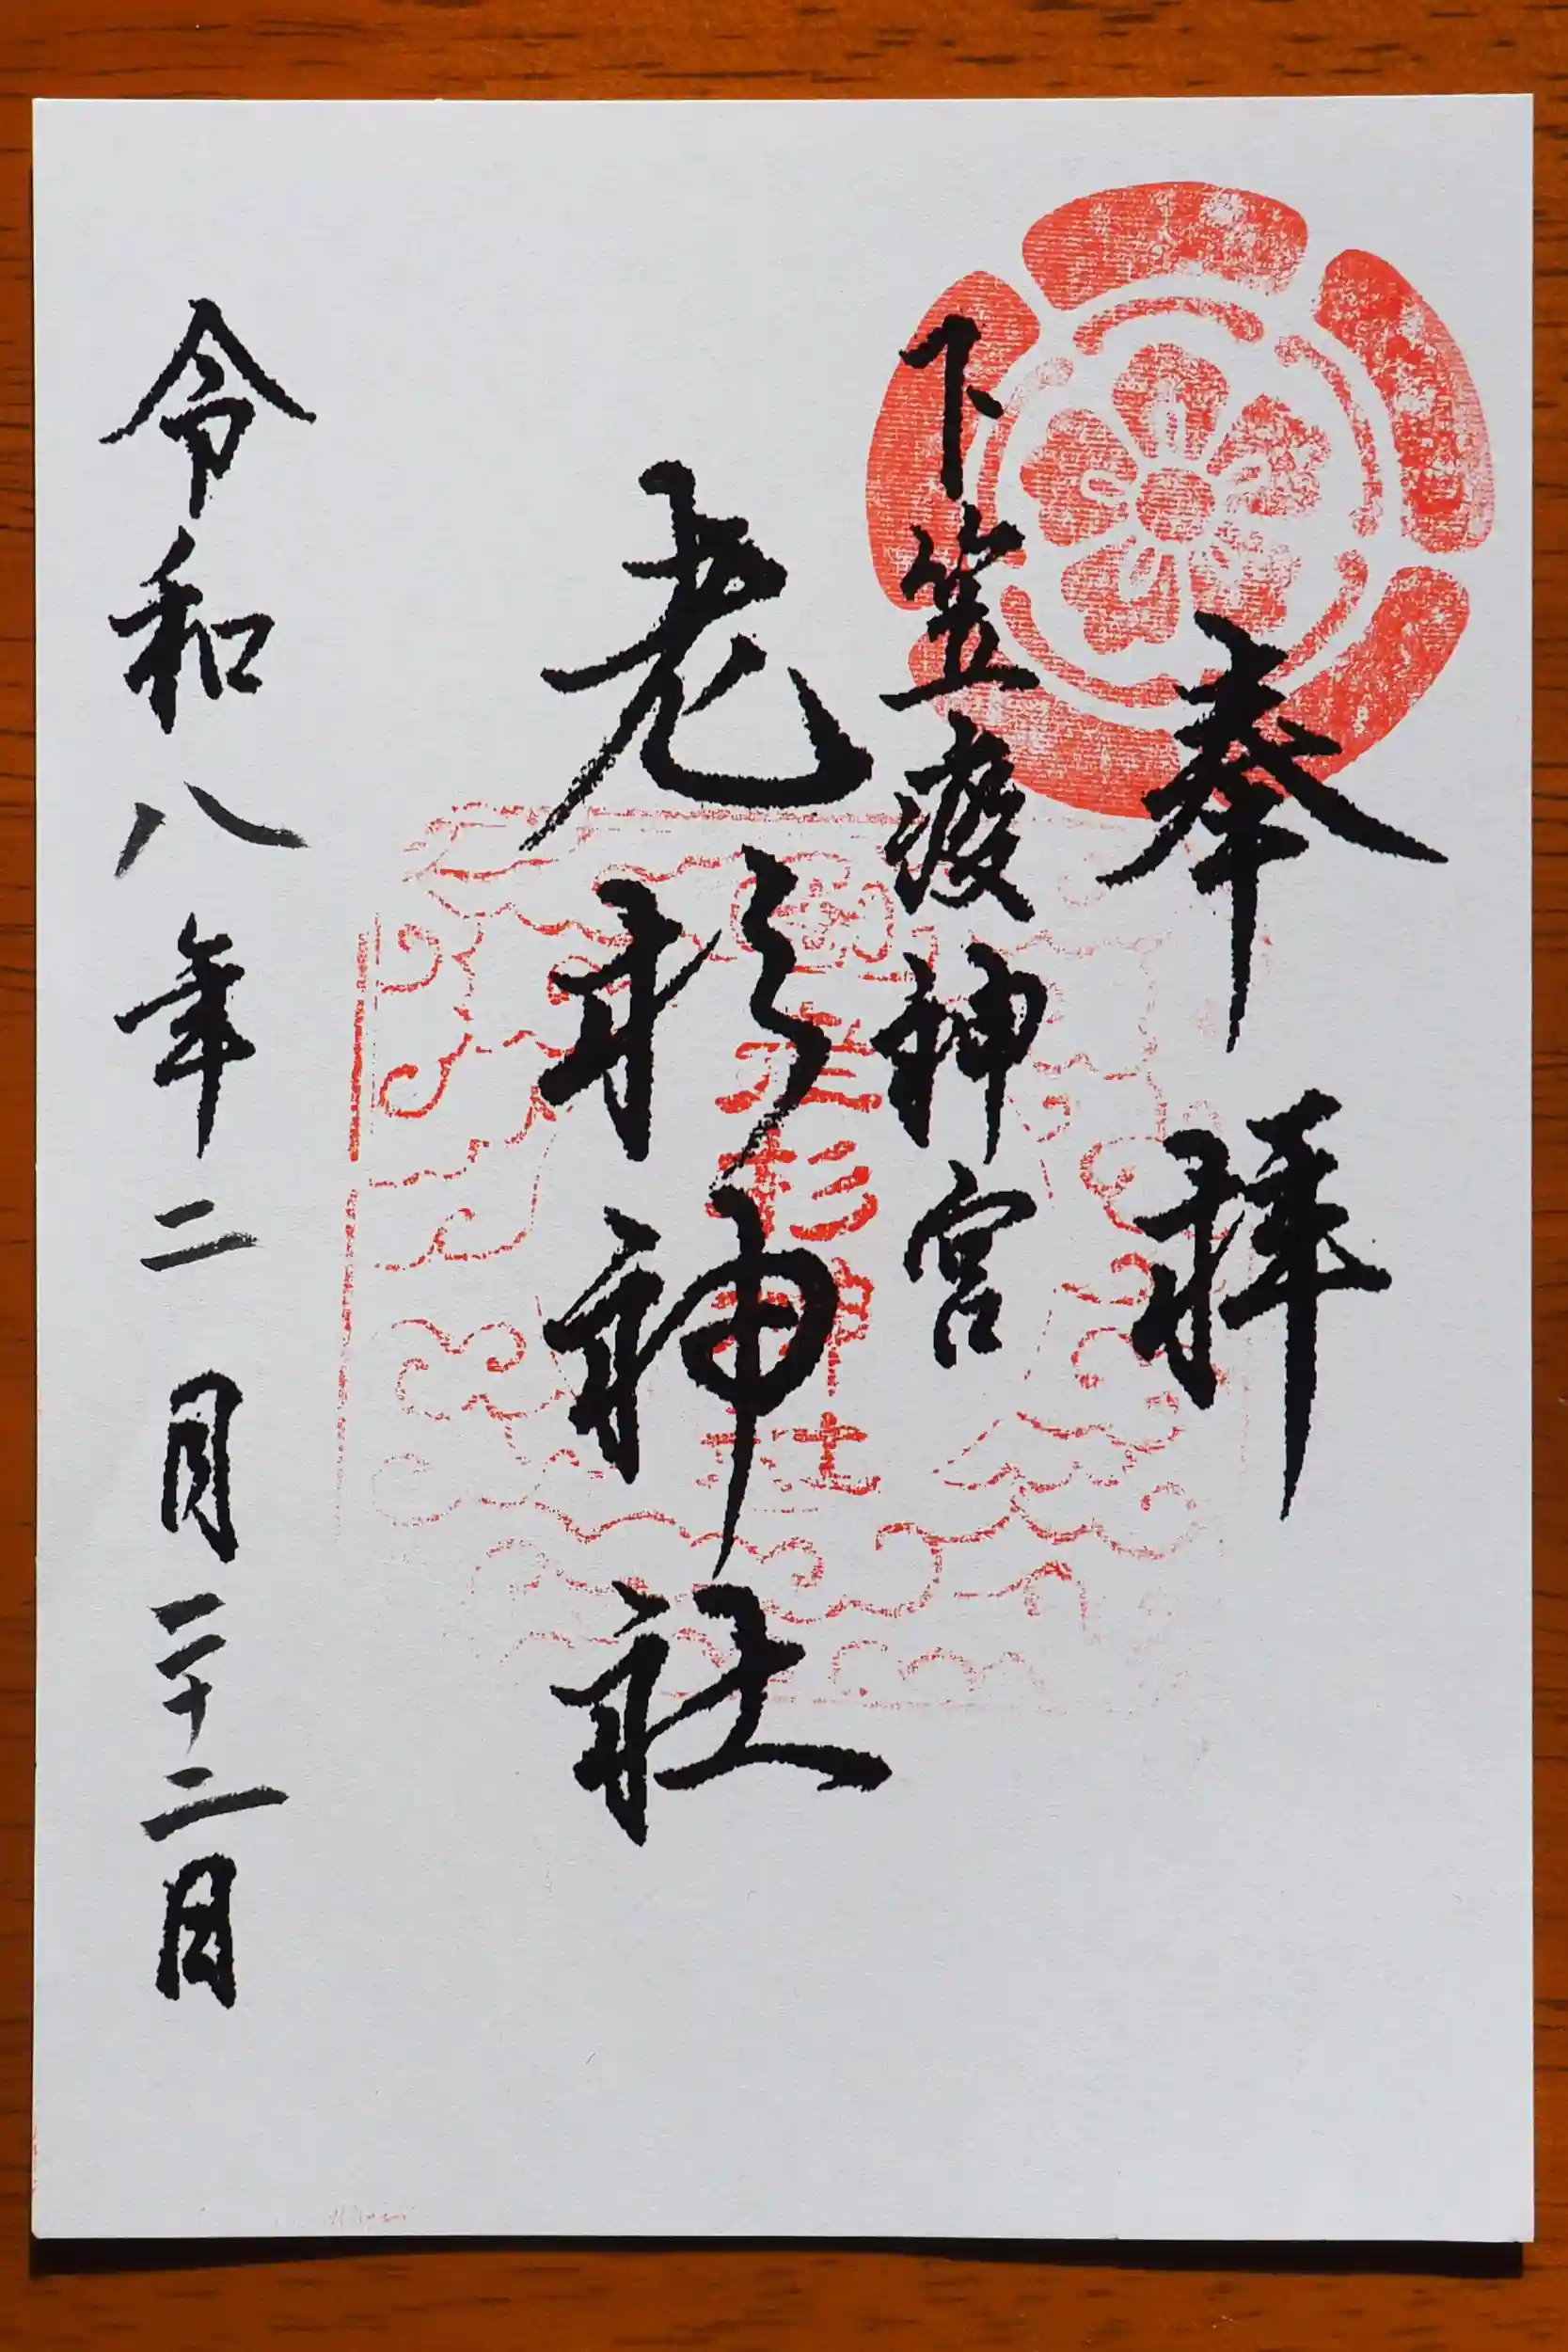 奉拝
下笠疫神宮
老杉神社
令和八年二月二十二日
老杉神社